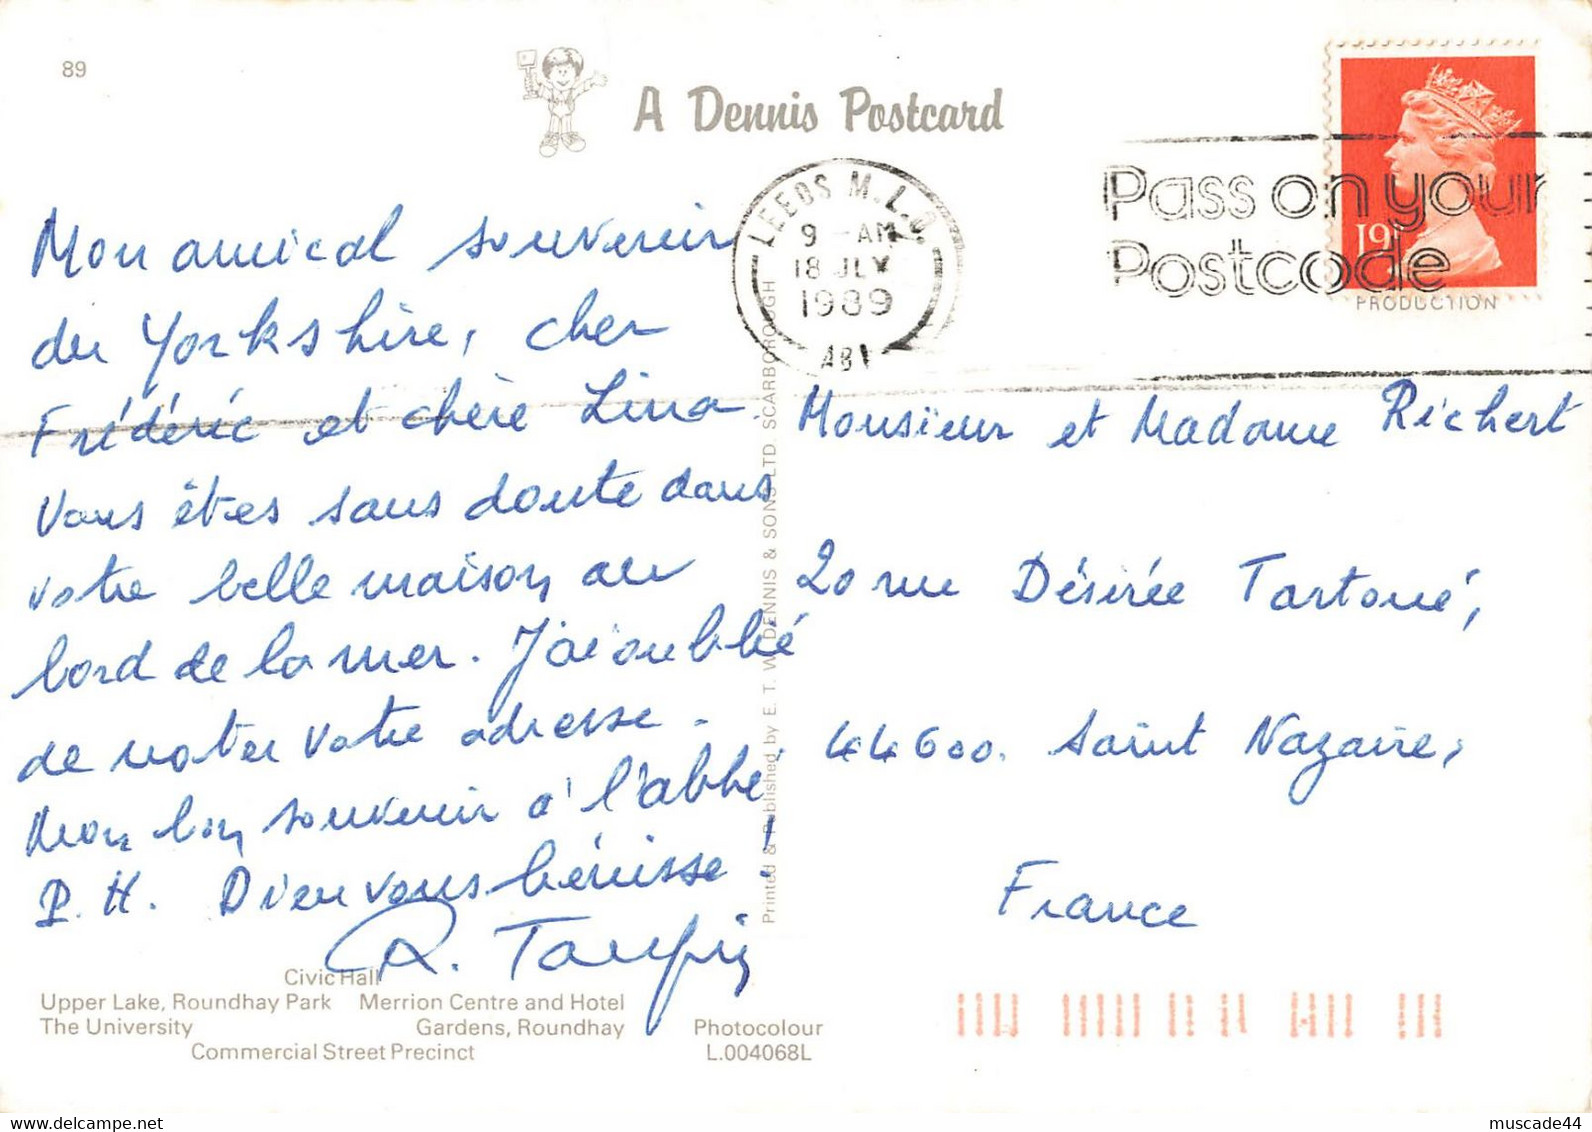 89
A Dennis Postcard
LEEDS M.L.O.
9 -AM
18 JLY
1989
Pass on your
Postcode
19
PRODUCTION
Mon amical souvenir
du Yorkshire, cher
Frédéric et chère Lina.
Vous êtes sans doute dans
votre belle maison au
bord de la mer. J'ai oublié
de noter votre adresse.
Mon bon souvenir à l'abbé
P.H. Dieu vous bénisse!
Printed & Published by E. T. W. DENNIS & SONS LTD. SCARBOROUGH
Monsieur et Madame Richert
20 rue Désirée Tartoué,
44600. Saint Nazaire,
France
Civic Hall
Upper Lake, Roundhay Park Merrion Centre and Hotel
The University Gardens, Roundhay
Commercial Street Precinct
Photocolour
L.004068L
muscade44